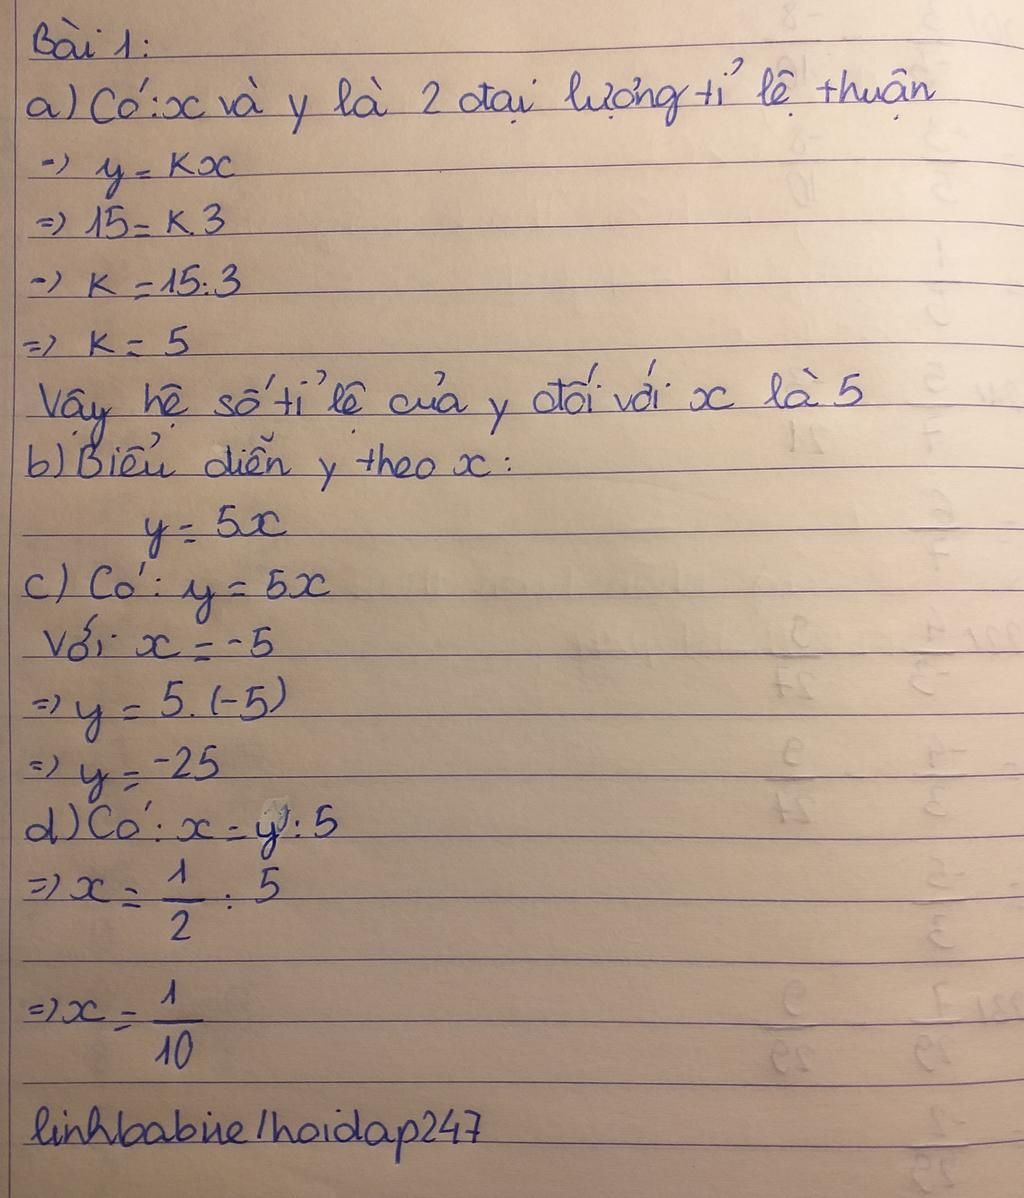 Bài 1:
a) Có: x và y là 2 đại lượng tỉ lệ thuận
=> y = Kx
=> 15 = K.3
=> K = 15:3
=> K = 5
Vậy hệ số tỉ lệ của y đối với x là 5
b) Biểu diễn y theo x:
y = 5x
c) Có: y = 5x
Với x = -5
=> y = 5.(-5)
=> y = -25
d) Có: x = y:5
=> x = 1/2 : 5
=> x = 1/10
linhbabiie/hoidap247